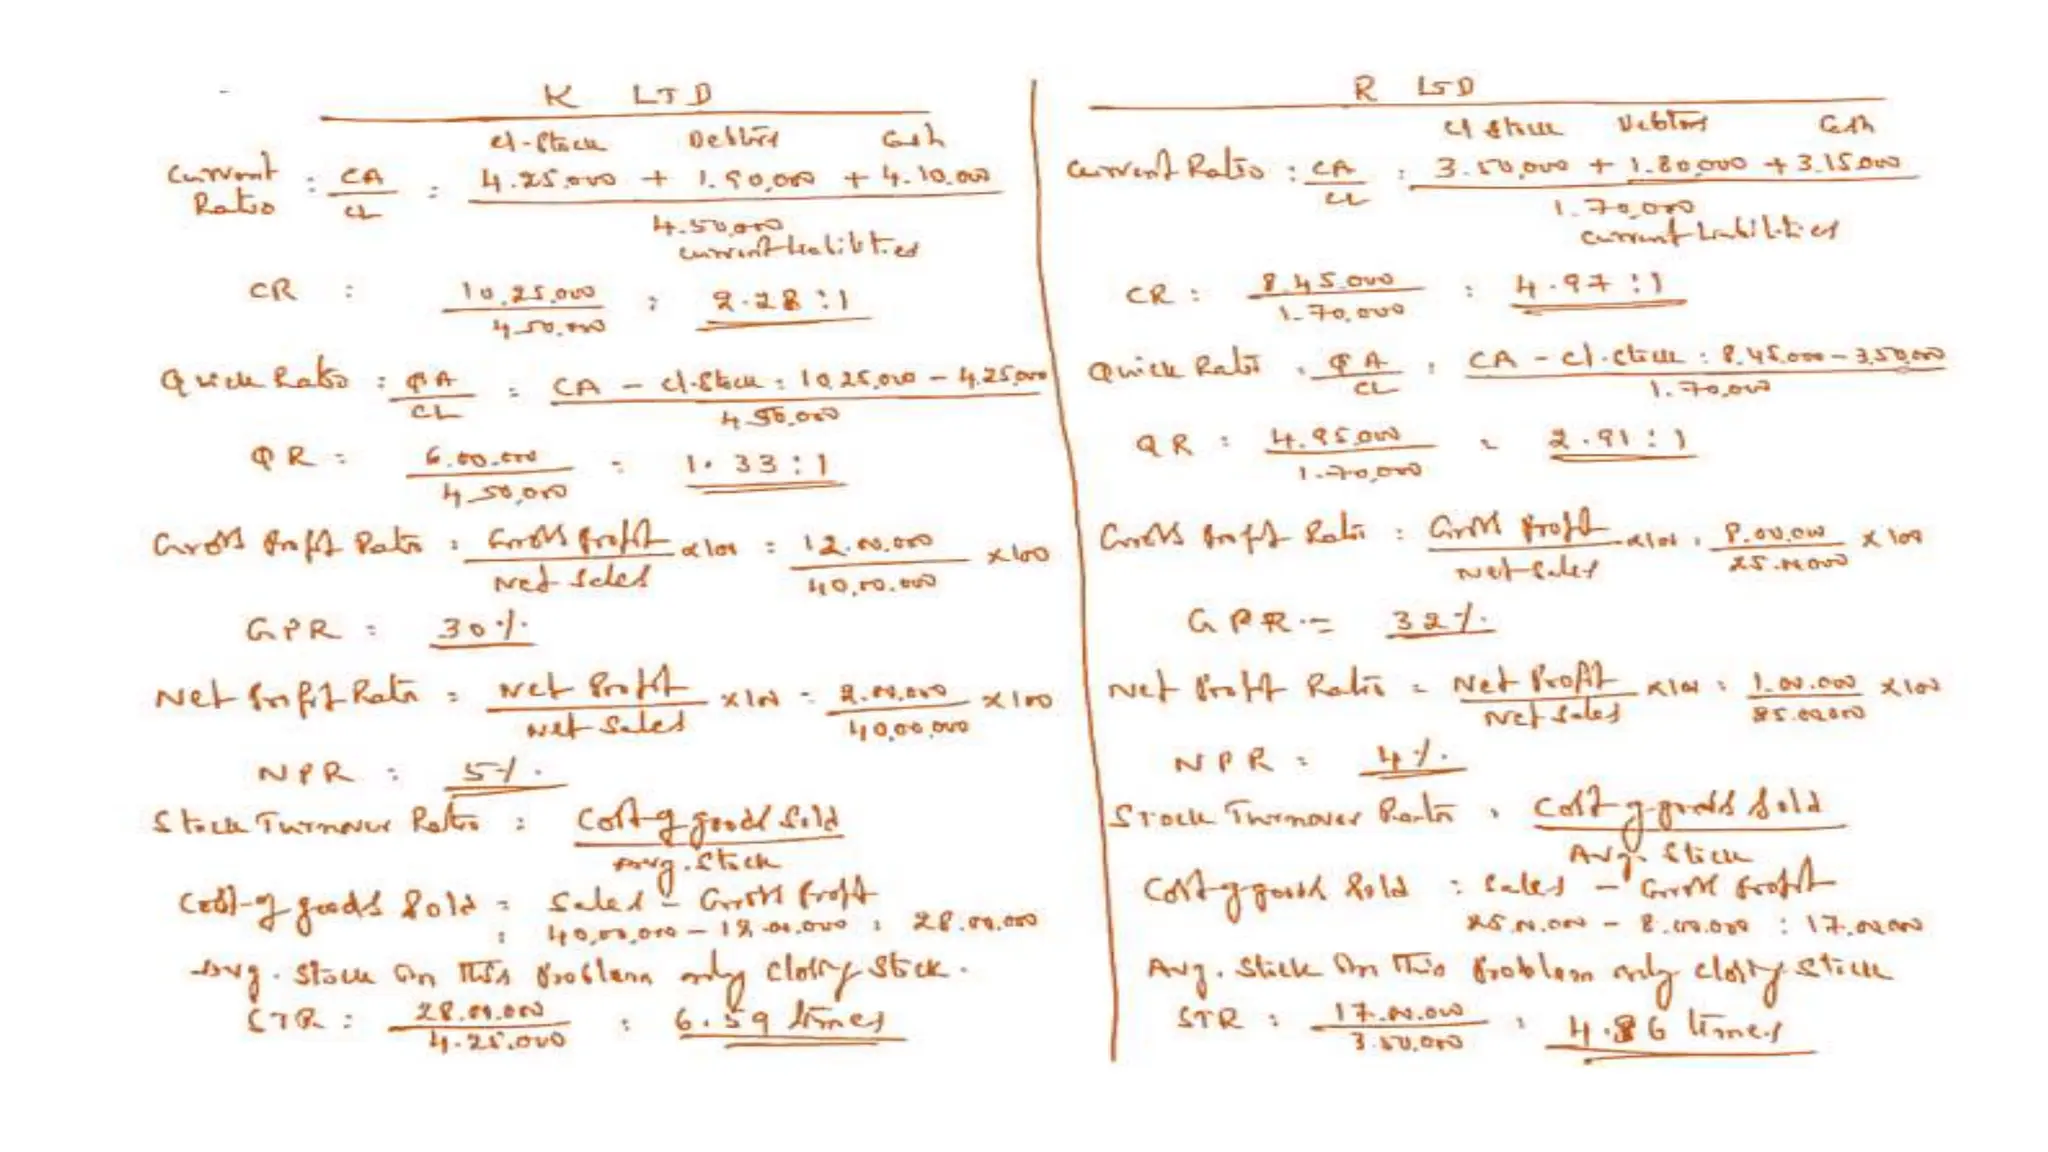 K LTD
cl-Stock Debtors Cash
Current Ratio : CA / CL : 4.25,000 + 1.90,000 + 4.10,000
4.50,000
current liabilities
CR : 10,25,000 / 4,50,000 : 2.28 : 1
Quick Ratio : QA / CL : CA - cl.Stock : 10,25,000 - 4,25,000
4,50,000
QR : 6,00,000 / 4,50,000 : 1.33 : 1
Gross Profit Ratio : Gross Profit / Net Sales x100 = 12,00,000 / 40,00,000 x100
GPR : 30%
Net Profit Ratio : Net Profit / Net Sales x100 = 2,00,000 / 40,00,000 x100
NPR : 5%
Stock Turnover Ratio : Cost of goods Sold / Avg. Stock
Cost of goods Sold = Sales - Gross Profit
: 40,00,000 - 12,00,000 : 28,00,000
Avg. Stock In this problem only closing Stock.
STR : 28,00,000 / 4,25,000 : 6.59 times
R LTD
cl Stock Debtors Cash
Current Ratio : CA / CL : 3.50,000 + 1.80,000 + 3.15,000
1.70,000
current liabilities
CR : 8,45,000 / 1,70,000 : 4.97 : 1
Quick Ratio : QA / CL : CA - cl.Stock : 8,45,000 - 3,50,000
1,70,000
QR : 4,95,000 / 1,70,000 = 2.91 : 1
Gross Profit Ratio : Gross Profit / Net Sales x100 : 8,00,000 / 25,00,000 x100
GPR = 32%
Net Profit Ratio = Net Profit / Net Sales x100 : 1,00,000 / 25,00,000 x100
NPR : 4%
Stock Turnover Ratio : Cost of goods Sold / Avg. Stock
Cost of goods Sold : Sales - Gross Profit
25,00,000 - 8,00,000 : 17,00,000
Avg. Stock In this problem only closing Stock
STR : 17,00,000 / 3,50,000 : 4.86 times